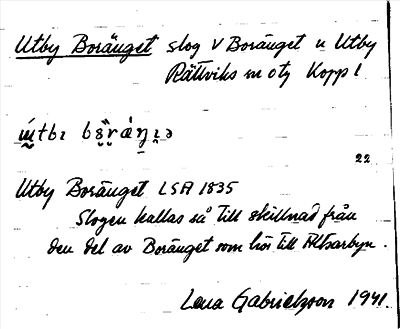 Utby Boränget slog V Boränget u Utby
Rättviks sn otg Kopp l
22
Utby Boränget LSA 1835
Slogen kallas så till skillnad från
den del av Boränget som hör till Altsarbyn.
Lena Gabrielsson 1941